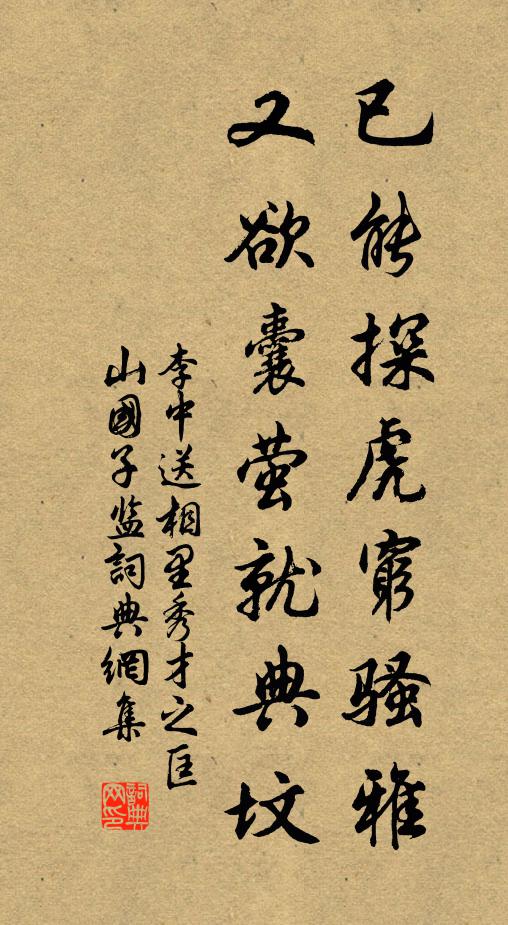 已能探虎窮騷雅
又欲囊萤就典坟
李中送相里秀才之匡
山國子监詞典網集
詞典网印